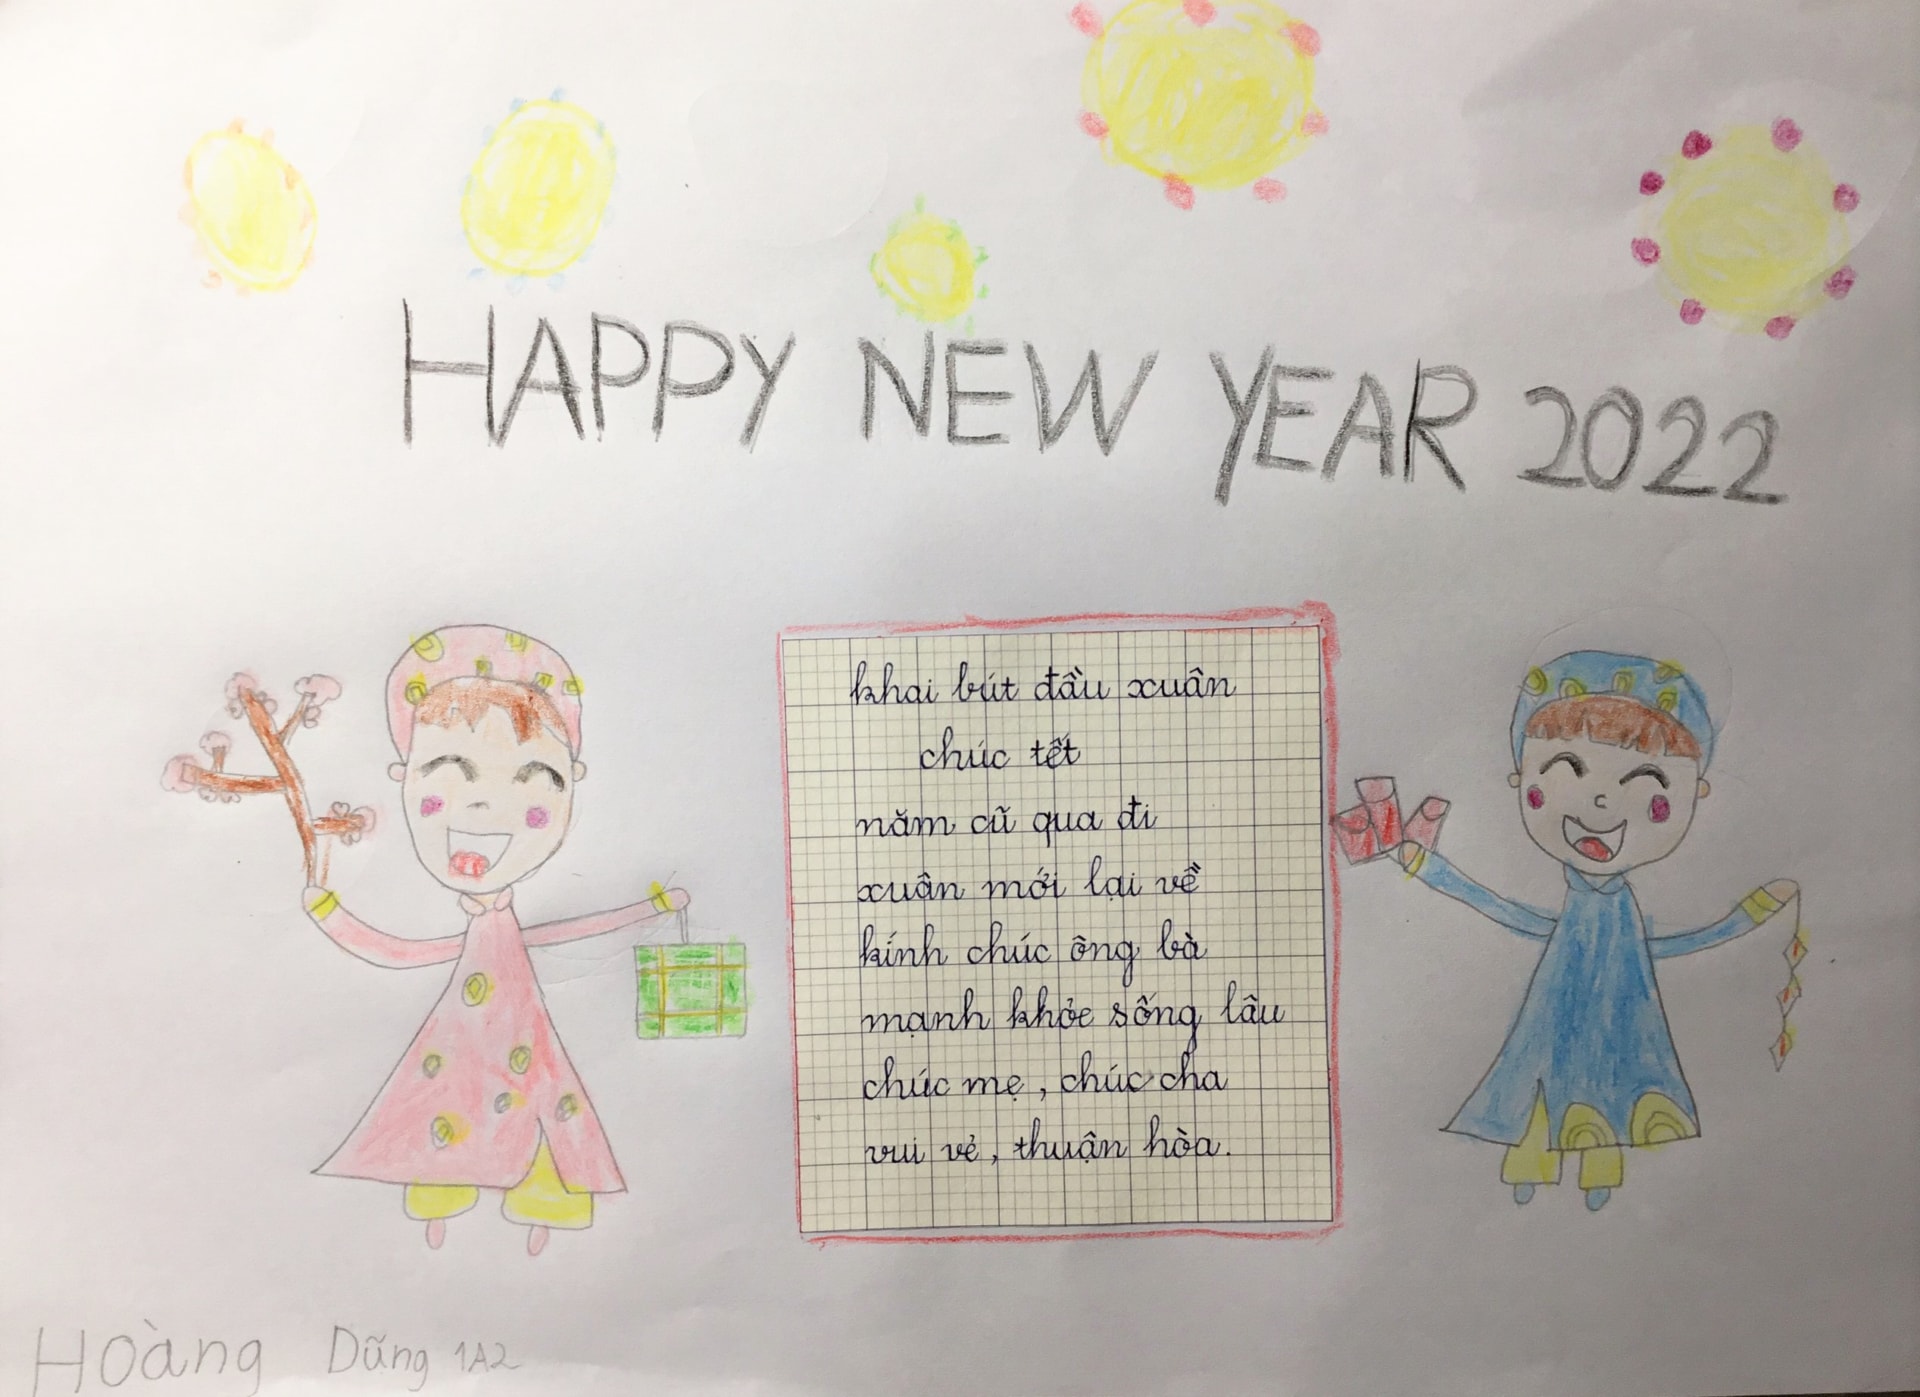 HAPPY NEW YEAR 2022
khai bút đầu xuân
chúc tết
năm cũ qua đi
xuân mới lại về
kính chúc ông bà
mạnh khỏe sống lâu
chúc mẹ, chúc cha
vui vẻ, thuận hòa.
Hoàng Dũng 1A2